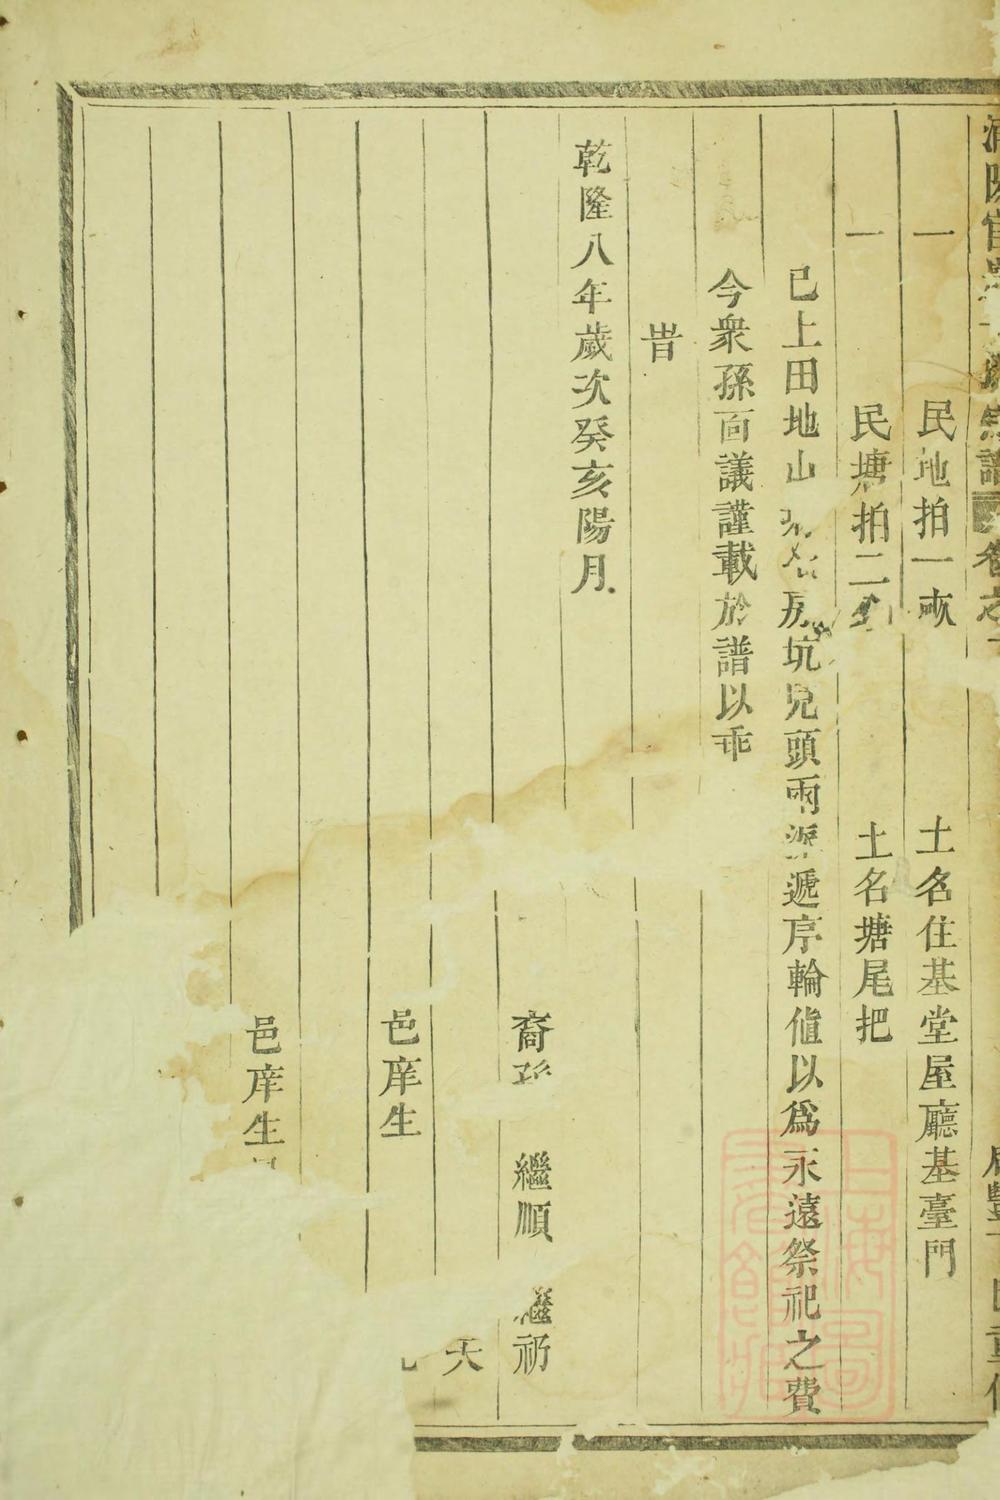 宗譜 卷之
一 民地拍一畝 土名住基堂屋廳基臺門
一 民塘拍二 土名塘尾把
已上田地山 房坑兒頭兩派遞序輪值以爲永遠祭祀之費
今衆孫面議謹載於譜以垂
旹
乾隆八年歲次癸亥陽月
裔孫 繼順 繼礽
天
邑庠生
邑庠生